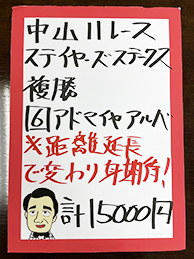 中山11レース
ステイヤーズ・ステークス
複勝
6アドマイヤアルバ
※距離延長
で変わり身期待!
計15000円